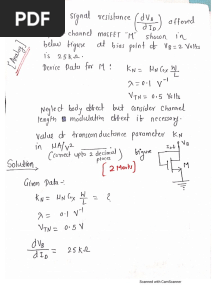 PDF
signal resistance (dVB/dID) offered
channel mosfet 'M' shown in
below figure at bias point of VB = 2 Volts
is 25 kΩ.
Device Data for M : KN = μN Cx W/L
λ = 0.1 V⁻¹
VTN = 0.5 Volts
Neglect body effect but consider channel
length modulation effect if necessary.
Value of transconductance parameter KN
in μA/V²
(correct upto 2 decimal places)
[2 Marks]
VB
M
Solution
Given Data :-
KN = μN Cx W/L = ?
λ = 0.1 V⁻¹
VTN = 0.5 V
dVB/dID = 25 kΩ
Scanned with CamScanner